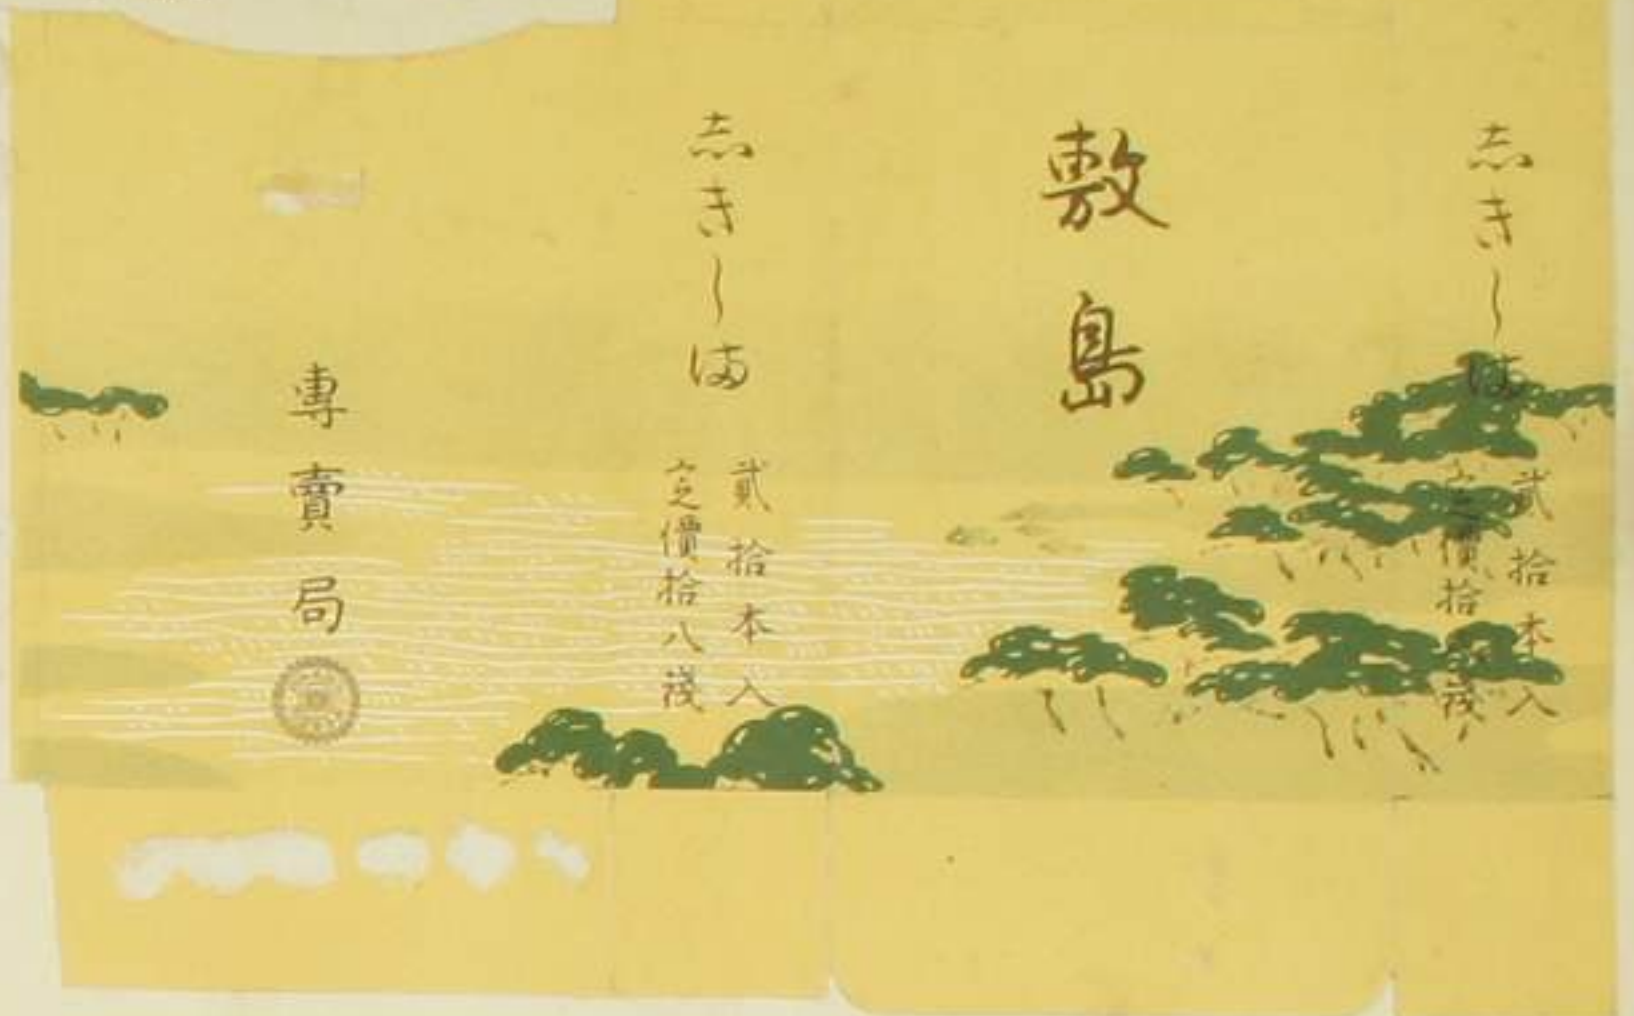 志きしま
貳拾本入
定價拾八淺
敷島
志きしま
貳拾本入
定價拾八淺
專賣局